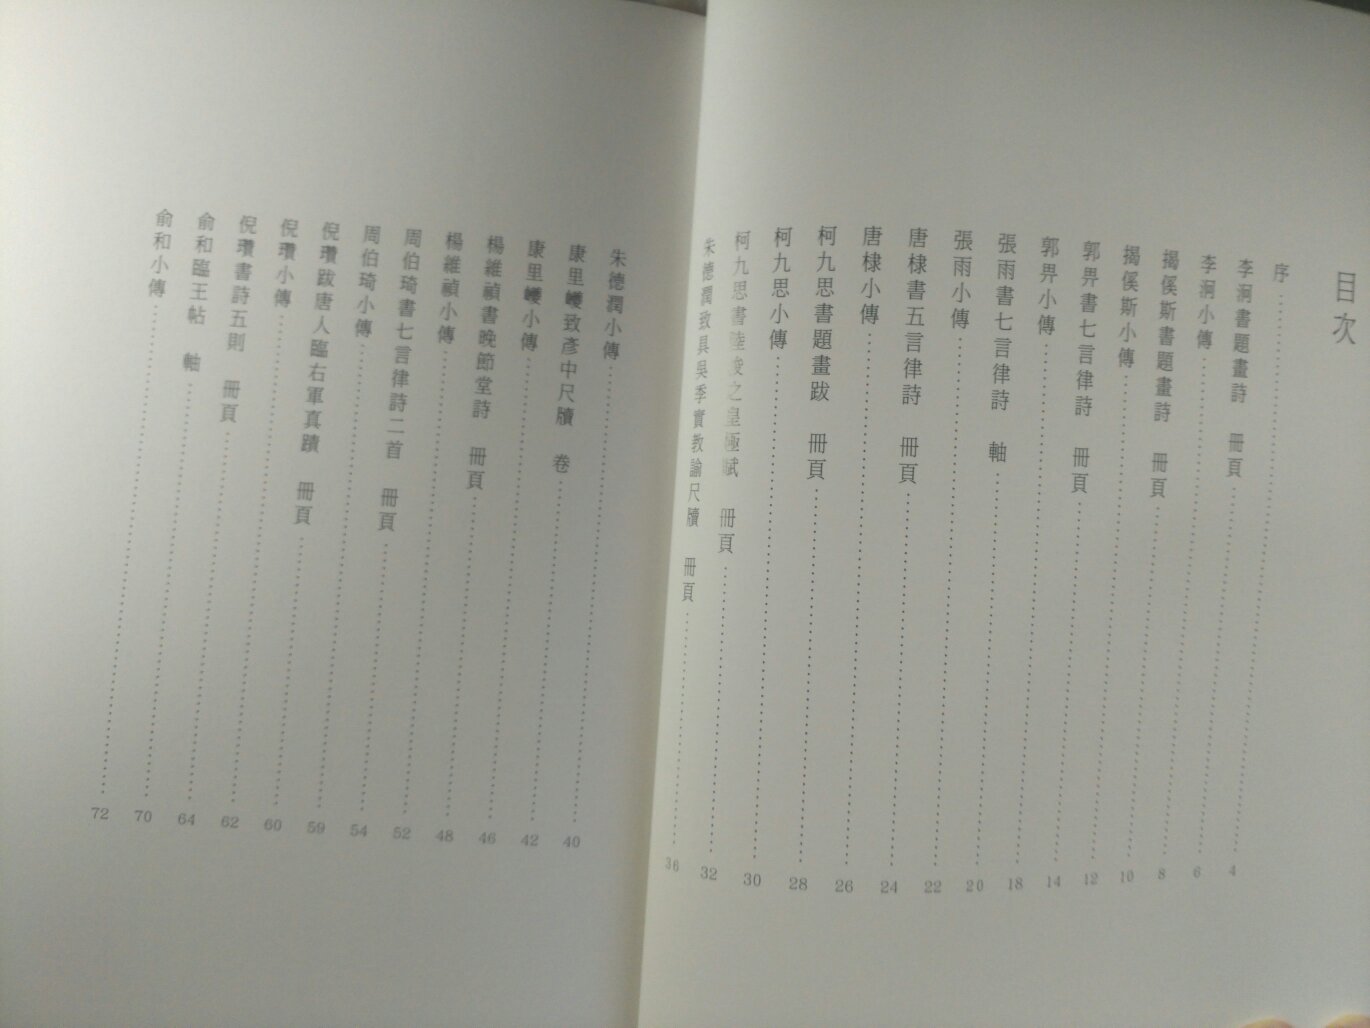 目次
序 4
李泂書題畫詩 冊頁 6
李泂小傳 8
揭傒斯書題畫詩 冊頁 10
揭傒斯小傳 12
郭畀書七言律詩 冊頁 14
郭畀小傳 18
張雨書七言律詩 軸 20
張雨小傳 22
唐棣書五言律詩 冊頁 24
唐棣小傳 26
柯九思書題畫跋 冊頁 28
柯九思小傳 30
柯九思書陸俊之皇極賦 冊頁 32
朱德潤致具吳季實教諭尺牘 冊頁 36
朱德潤小傳 40
康里巎致彥中尺牘 卷 42
康里巎小傳 46
楊維禎書晚節堂詩 冊頁 48
楊維禎小傳 52
周伯琦書七言律詩二首 冊頁 54
周伯琦小傳 59
倪瓚跋唐人臨右軍真蹟 冊頁 60
倪瓚小傳 62
倪瓚書詩五則 冊頁 64
俞和臨王帖 軸 70
俞和小傳 72